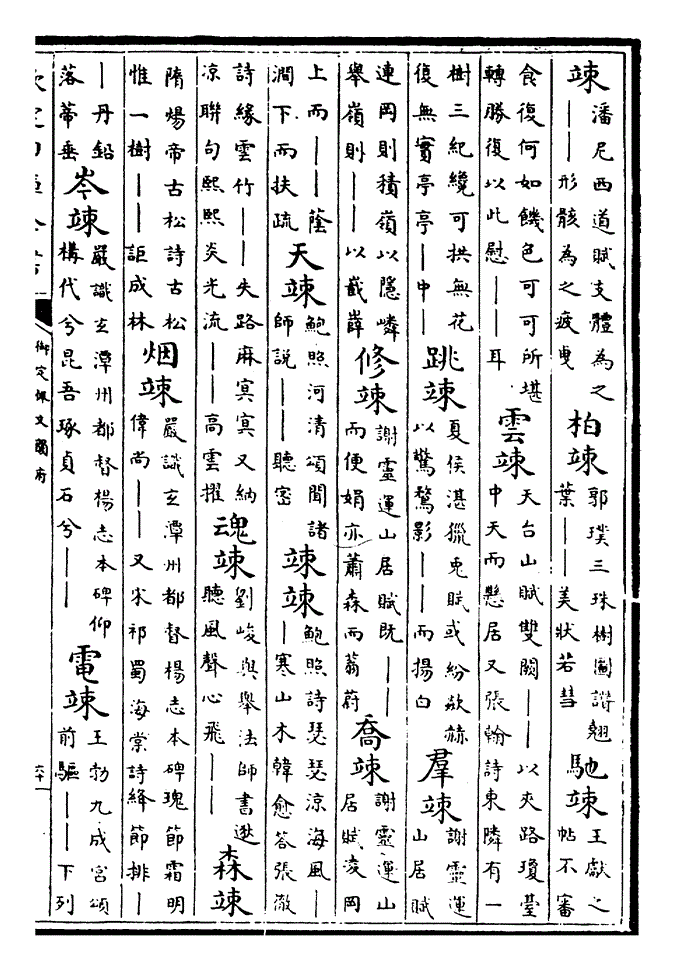 竦
潘尼西道賦支體為之
——形骸為之疲曳
柏竦
郭璞三珠樹圖讚翹
葉——美狀若彗
馳竦
王獻之
帖不審
食復何如饑色可可所堪
轉勝復以此慰——耳
雲竦
天台山賦雙闕——以夾路瓊臺
中天而懸居又張翰詩東隣有一
樹三紀纔可拱無花
復無實亭亭—中—
跳竦
夏侯湛獵兔賦或紛歘赫
以驚鶩影——而揚白
羣竦
謝靈運
山居賦
連岡則積嶺以隱嶙
舉嶺則——以嶻嶭
修竦
謝靈運山居賦既——
而便娟亦蕭森而蓊蔚
喬竦
謝靈運山
居賦淩岡
上而——蔭
澗下而扶疏
天竦
鮑照河清頌聞諸
師說——聽密
竦竦
鮑照詩瑟瑟涼海風—
—寒山木韓愈荅張徹
詩緣雲竹——失路麻冥冥又納
涼聯句熙熙炎光流——高雲擢
魂竦
劉峻與舉法師書邀
聽風聲心飛——
森竦
隋煬帝古松詩古松
惟一樹——詎成林
烟竦
嚴識玄潭州都督楊志本碑瑰節霜明
偉尚——又宋祁蜀海棠詩絳節排—
—丹鉛
落蒂垂
岑竦
嚴識玄潭州都督楊志本碑仰
構代兮昆吾琢貞石兮——
電竦
王勃九成宮頌
前驅——下列
御定佩文韻府